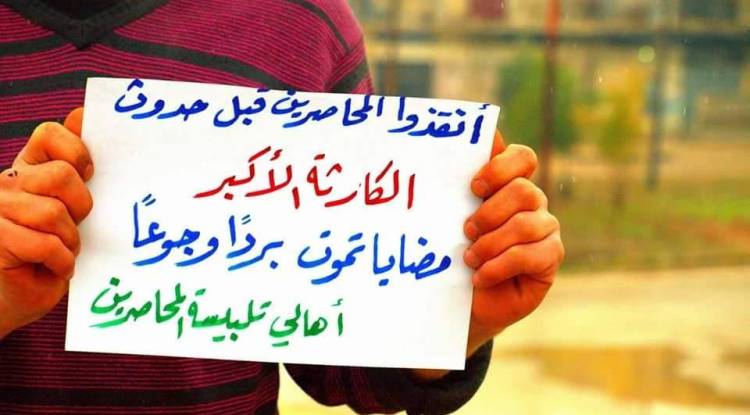 أنقذوا المحاصرين قبل حدوث
الكارثة الأكبر
مضايا تموت بردًا وجوعًا
أهالي تلبيسة المحاصرين